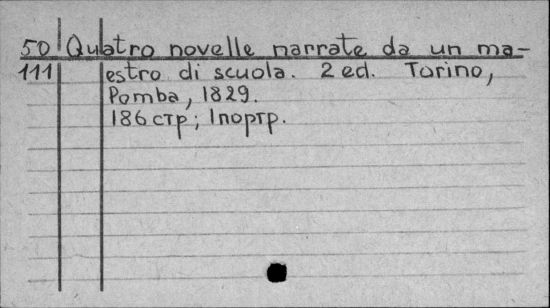 50 Quatro novelle narrate da un ma-
111 estro di scuola. 2 ed. Torino,
Pomba, 1829.
186 стр; 1 портр.